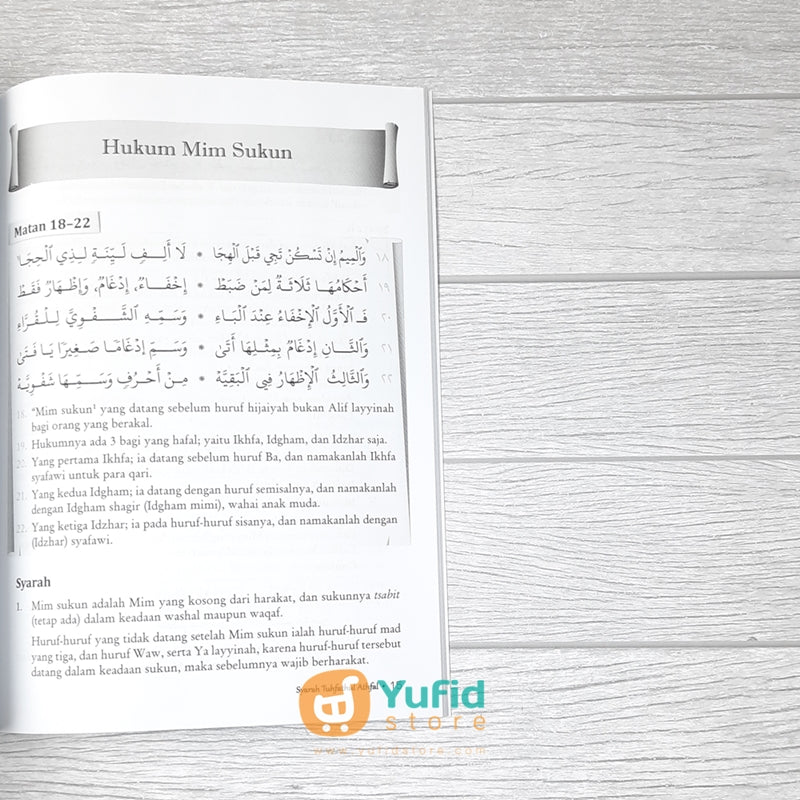 Hukum Mim Sukun
Matan 18–22
١٨ وَالْمِيمُ إِنْ تَسْكُنْ تَجِي قَبْلَ الْهِجَا * لَا أَلِفٍ لَيِّنَةٍ لِذِي الْحِجَا
١٩ أَحْكَامُهَا ثَلَاثَةٌ لِمَنْ ضَبَطْ * إِخْفَاءٌ، إِدْغَامٌ، وَإِظْهَارٌ فَقَطْ
٢٠ فَالْأَوَّلُ الْإِخْفَاءُ عِنْدَ الْبَاءِ * وَسَمِّهِ الشَّفْوِيَّ لِلْقُرَّاءِ
٢١ وَالثَّانِ إِدْغَامٌ بِمِثْلِهَا أَتَى * وَسَمِّ إِدْغَامًا صَغِيرًا يَا فَتَى
٢٢ وَالثَّالِثُ الْإِظْهَارُ فِي الْبَقِيَّةْ * مِنْ أَحْرُفٍ وَسَمِّهَا شَفْوِيَّةْ
18. "Mim sukun¹ yang datang sebelum huruf hijaiyah bukan Alif layyinah
bagi orang yang berakal.
19. Hukumnya ada 3 bagi yang hafal; yaitu Ikhfa, Idgham, dan Idzhar saja.
20. Yang pertama Ikhfa; ia datang sebelum huruf Ba, dan namakanlah Ikhfa
syafawi untuk para qari.
21. Yang kedua Idgham; ia datang dengan huruf semisalnya, dan namakanlah
dengan Idgham shagir (Idgham mimi), wahai anak muda.
22. Yang ketiga Idzhar; ia pada huruf-huruf sisanya, dan namakanlah dengan
(Idzhar) syafawi.
Syarah
1. Mim sukun adalah Mim yang kosong dari harakat, dan sukunnya tsabit
(tetap ada) dalam keadaan washal maupun waqaf.
Huruf-huruf yang tidak datang setelah Mim sukun ialah huruf-huruf mad
yang tiga, dan huruf Waw, serta Ya layyinah, karena huruf-huruf tersebut
datang dalam keadaan sukun, maka sebelumnya wajib berharakat.
Syarah Tuhfathul Athfal
Yufid
store
www.yufidstore.com